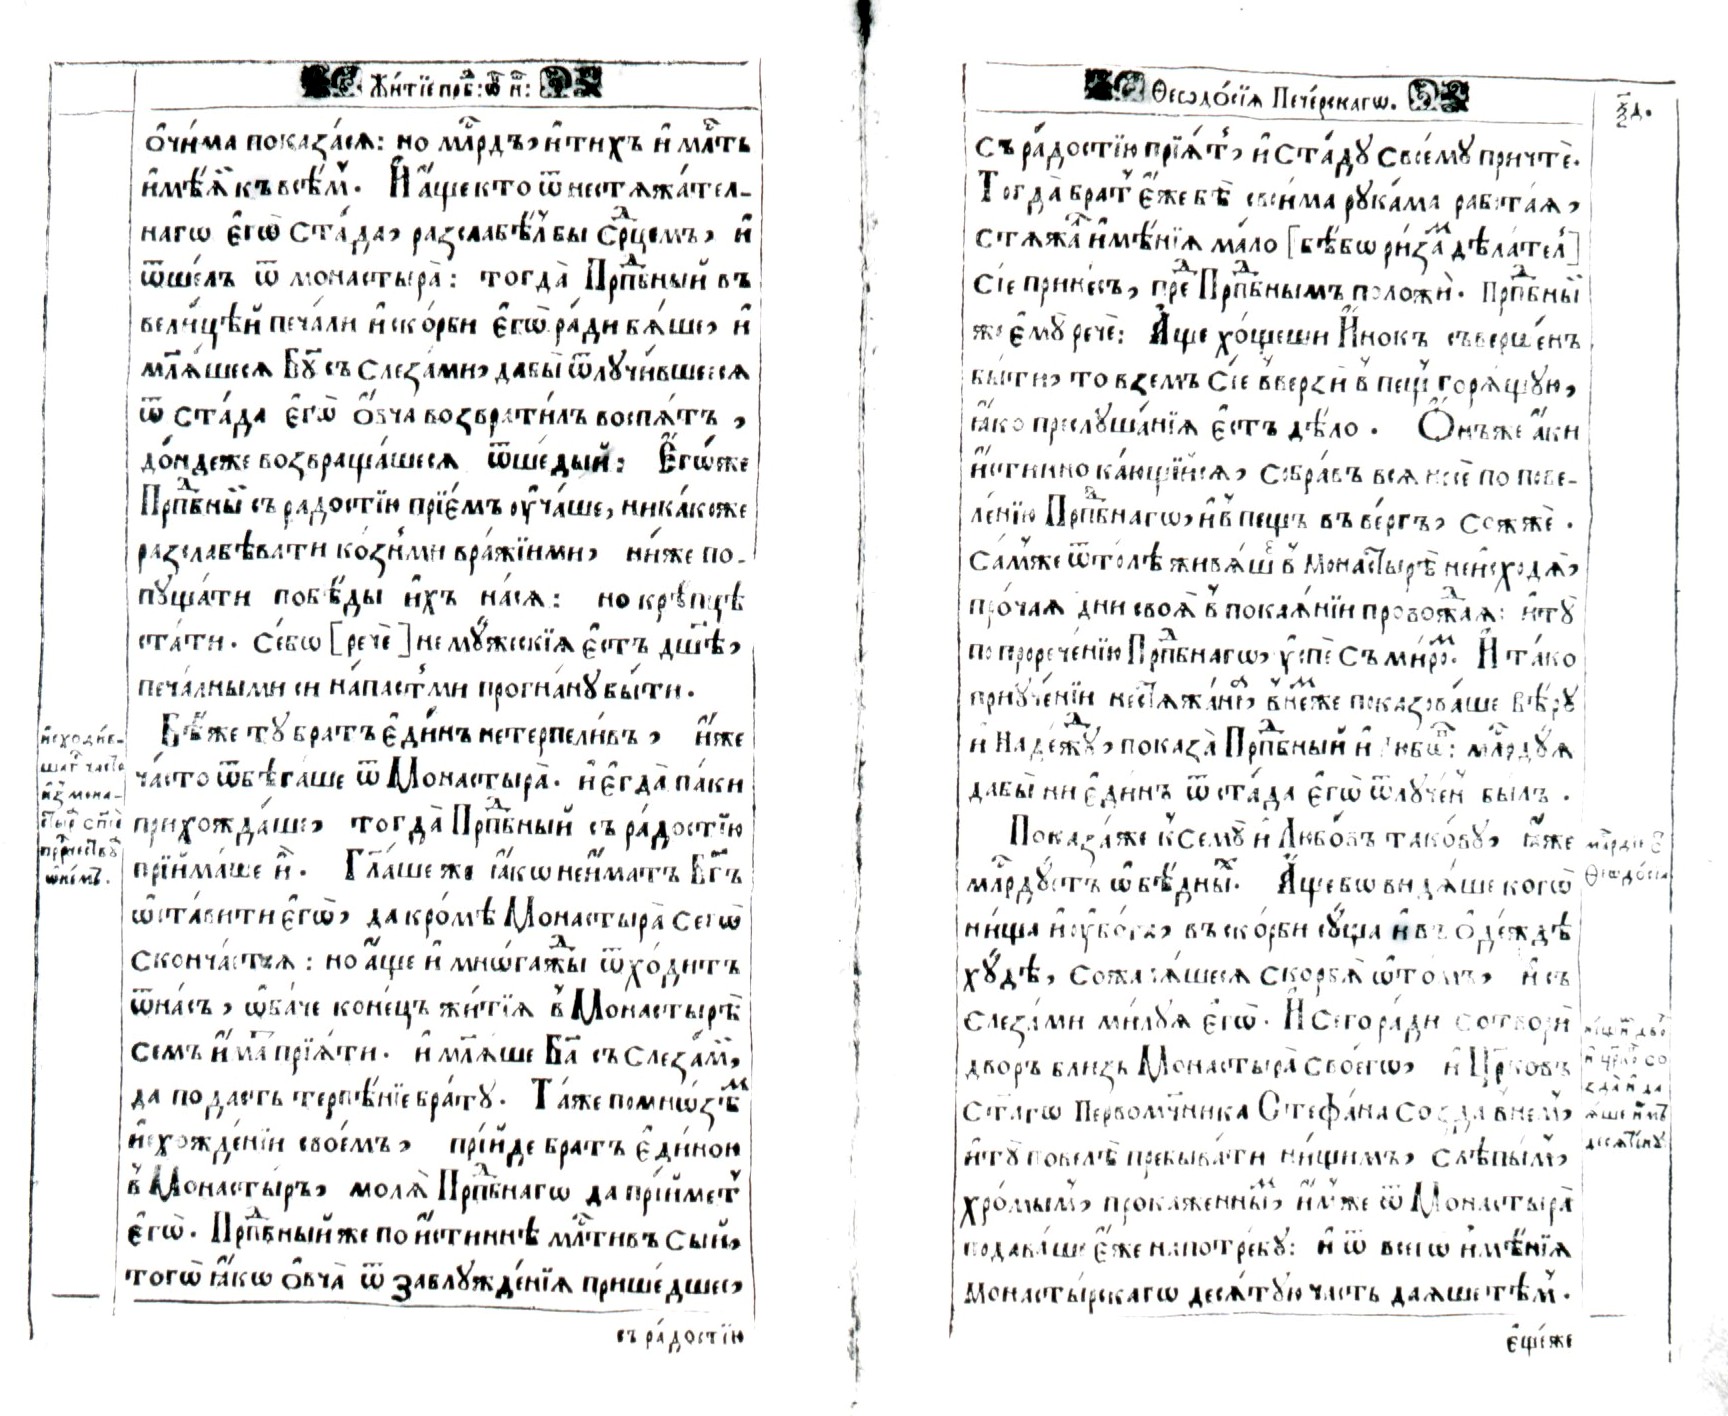 Житїе прпб: ѿ н:
ѻ҆чи́ма показа́сѧ: но млⷭ҇рдъ, и҆ тихъ и҆ млⷭ҇ть
и҆мѣ́ѧ къ всѣ́мъ. И҆ а҆́ще кто ѿ нестѧжа́тел-
наго є҆гѡ̀ Ста́да, разслабѣ́лъ бы Срⷣцемъ, и҆
ѿше́лъ ѿ монастырѧ̀: тогда̀ Прпⷣбный въ
вели́цѣй печа́ли и҆ ско́рби є҆гѡ̀ ра́ди бѧ́ше, и҆
млѧ́шесѧ Бг҃ꙋ съ Слеза́ми, дабы̀ ѿлꙋчи́вшеесѧ
ѿ Ста́да є҆гѡ̀ ѻ҆вча возврати́лъ воспѧ́тъ,
до́ндеже возвраща́шесѧ ѿше́дый: Є҆го́же
Прпⷣбный съ ра́достїю прїе́мъ ᲂу҆ча́ше, ника́коже
разслабѣва́ти ко́зньми вра́жїими, ни́же по-
пꙋща́ти побѣ́ды и҆хъ на́сѧ: но крѣ́пцѣ
ста́ти. Се́бѡ [речѐ] не мꙋ́жескїѧ є҆́стъ дш҃ѣ̀,
печа́лными си напа́стьми прогна́нꙋ бы́ти.
Бѣ́же тꙋ братъ є҆ди́нъ нетерпели́въ, и҆́же
ча́сто ѿбѣга́ше ѿ Монастырѧ̀. и҆ є҆гда̀ па́ки
прихожда́ше, тогда̀ Прпⷣбный съ ра́достїю
прїйма́ше и҆̀. Гл҃аше же ꙗ҆́кѡ не и҆́матъ Бг҃ъ
ѡ҆ста́вити є҆гѡ̀, да кро́мѣ Монастырѧ̀ Сегѡ̀
Сконча́етсѧ: но а҆́ще и҆ мно́гажⷣы ѿхо́дитъ
ѿ на́съ, ѡ҆ба́че коне́цъ житїѧ̀ в̾ Монастырѣ̀
Семъ и҆́мать прїѧ́ти. и҆ млѧ́ше Бг҃а съ Слеза́ми,
да пода́стъ терпѣ́нїе бра́тꙋ. Та́же по мно́зѣмъ
и҆схожде́нїи своє́мъ, прїи́де братъ є҆ди́ною
в̾ Монасты́ръ, молѧ̀ Прпⷣбнаго да прїи́метъ
є҆гѡ̀. Прпⷣбный же по и҆́стиннѣ млⷭ҇тивъ Сый,
тогѡ̀ ꙗ҆́кѡ ѻ҆вча̀ ѿ заблꙋжде́нїѧ прише́дшее,
съ ра́достїю
и҆сходи́в-
шагѡ ча́сто
и҆з̾ мона-
стырѧ̀ спⷭ҇нїе
прⷪ҇рчествꙋ̀
ѡ не́мъ.
Ѳеодо́сїѧ Пече́рскагѡ.
ѯ҃д.
Съ ра́достїю прїѧ́тъ, и҆ Ста́дꙋ Своемꙋ причтѐ.
Тогда̀ братъ є҆́же бѣ̀ свои́ма рꙋка́ма рабо́таѧ,
Стѧжа̀ и҆мѣ́нїѧ ма́ло [бѣ́ бѡ ри́замъ дѣ́латель]
Сїе принє́съ, предⷣ Прпⷣбнымъ положѝ. Прпⷣбный
же є҆мꙋ̀ речѐ: А҆́ще хо́щеши И҆́нокъ Съверше́нъ
бы́ти, то вземъ Сїе вверзѝ в̾ пещь горѧ́щꙋю,
ꙗ҆́ко преслꙋша́нїѧ є҆́стъ дѣ́ло. Ѻ҆́нъже а҆́ки
и҆́стинно ка́ющїйсѧ, Собра́въ всѧ несѐ по пове-
ле́нїю Прпⷣбнаго, и҆ в̾ пещъ въве́ргъ, Сожжѐ.
Са́мже ѿто́лѣ живѧ́ше в̾ Монастырѣ̀ неисходѧ̀,
про́чаѧ дни своѧ̀ в̾ покаѧ́нїи провожⷣаѧ: и҆ тꙋ̀
по прорече́нїю Прпⷣбнаго, ᲂу҆спѐ Съ ми́ромъ. И҆ та́ко
при ᲂу҆че́нїи нестѧжа́нїѧ, в̾ не́мже показова́ше вѣ́рꙋ
и҆ Наде́ждꙋ, показа̀ Прпⷣбный и҆ Любовь: млⷭ҇рдꙋѧ
дабы̀ ни є҆ди́нъ ѿ ста́да є҆гѡ̀ ѿлꙋче́нъ бы́лъ.
Показа́же к̾ Семꙋ̀ и҆ Любо́въ тако́вꙋ, ꙗ҆́же
млⷭ҇рдꙋетъ ѡ҆ бѣ́дныхъ. А҆́ще бѡ ви́дѧше когѡ̀
ни́ща и҆ ᲂу҆бо́га, въ ско́рби сꙋ́ща и҆ въ ѻ҆де́ждѣ
хꙋ́дѣ, Сожалѧ́шесѧ Скорбѧ̀ ѡ҆ то́мъ, и҆ съ
Слеза́ми ми́лꙋѧ є҆гѡ̀. И҆ Сего ра́ди сотворѝ
дворъ близь Монастырѧ̀ Своегѡ̀, и҆ Цр҃ковъ
Ст҃агѡ Первомч҃ника Стефа́на Созда в̾ не́мъ,
и҆ тꙋ̀ повелѣ̀ пребыва́ти ни́щимъ, Слѣпы́мъ,
хро́мымъ, прокаже́ннымъ, и҆̀мже ѿ Монастырѧ̀
подава́ше є҆́же на потре́бꙋ: и҆ ѿ всегѡ̀ и҆мѣ́нїѧ
Монасты́рскагѡ десѧ́тꙋю часть даѧ́ше тѣ́мъ.
є҆ще́же
млⷭ҇рдїе с҃.
Ѳеодо́сїа
ни́щымъ дво́ръ
и҆ цр҃ковь со
зда̀ и҆ да
ѧ́ше и҆̀мъ
десѧти́нꙋ